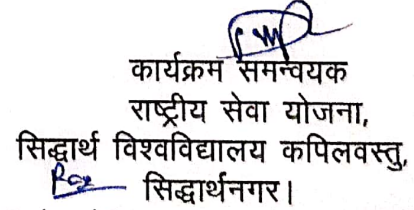 कार्यक्रम समन्वयक
राष्ट्रीय सेवा योजना,
सिद्धार्थ विश्वविद्यालय कपिलवस्तु,
सिद्धार्थनगर।